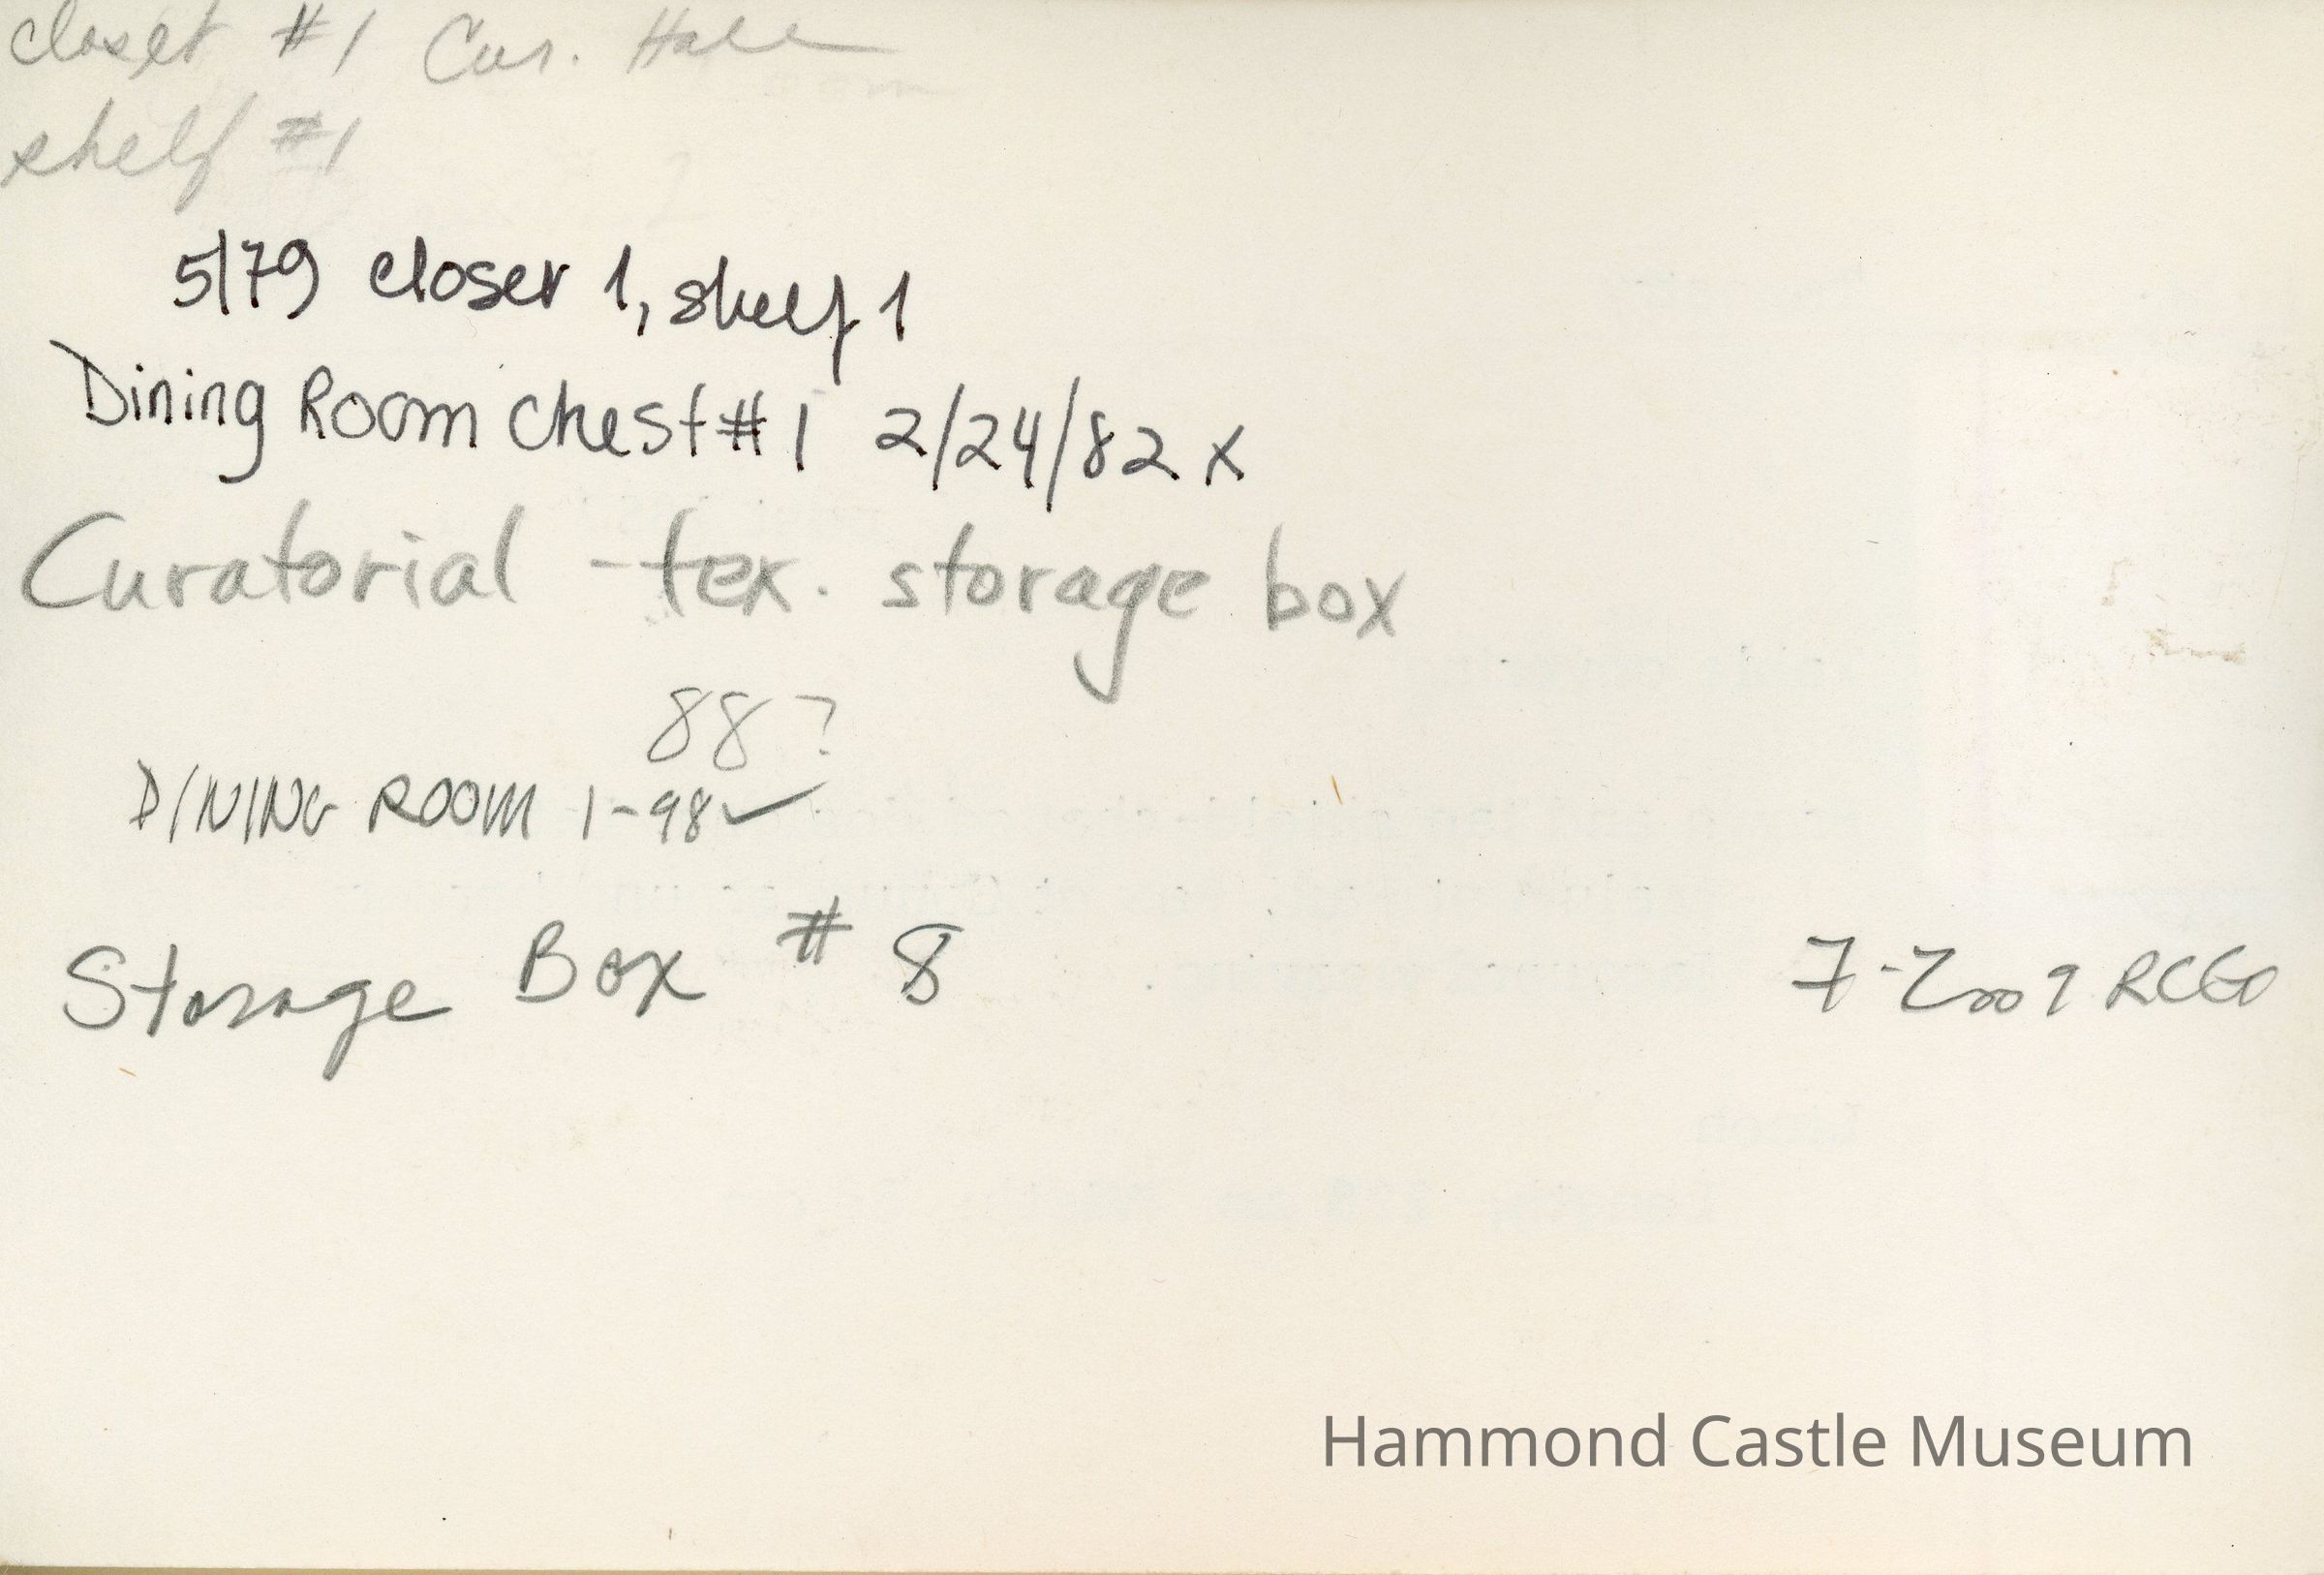 closet #1 Cur. Hall
shelf #1
5/79 closet 1, shelf 1
Dining Room Chest #1 2/24/82 x
Curatorial - tex. storage box
88?
DINING ROOM 1-98 ✓
Storage Box # 8 7-2009 RCGO
Hammond Castle Museum